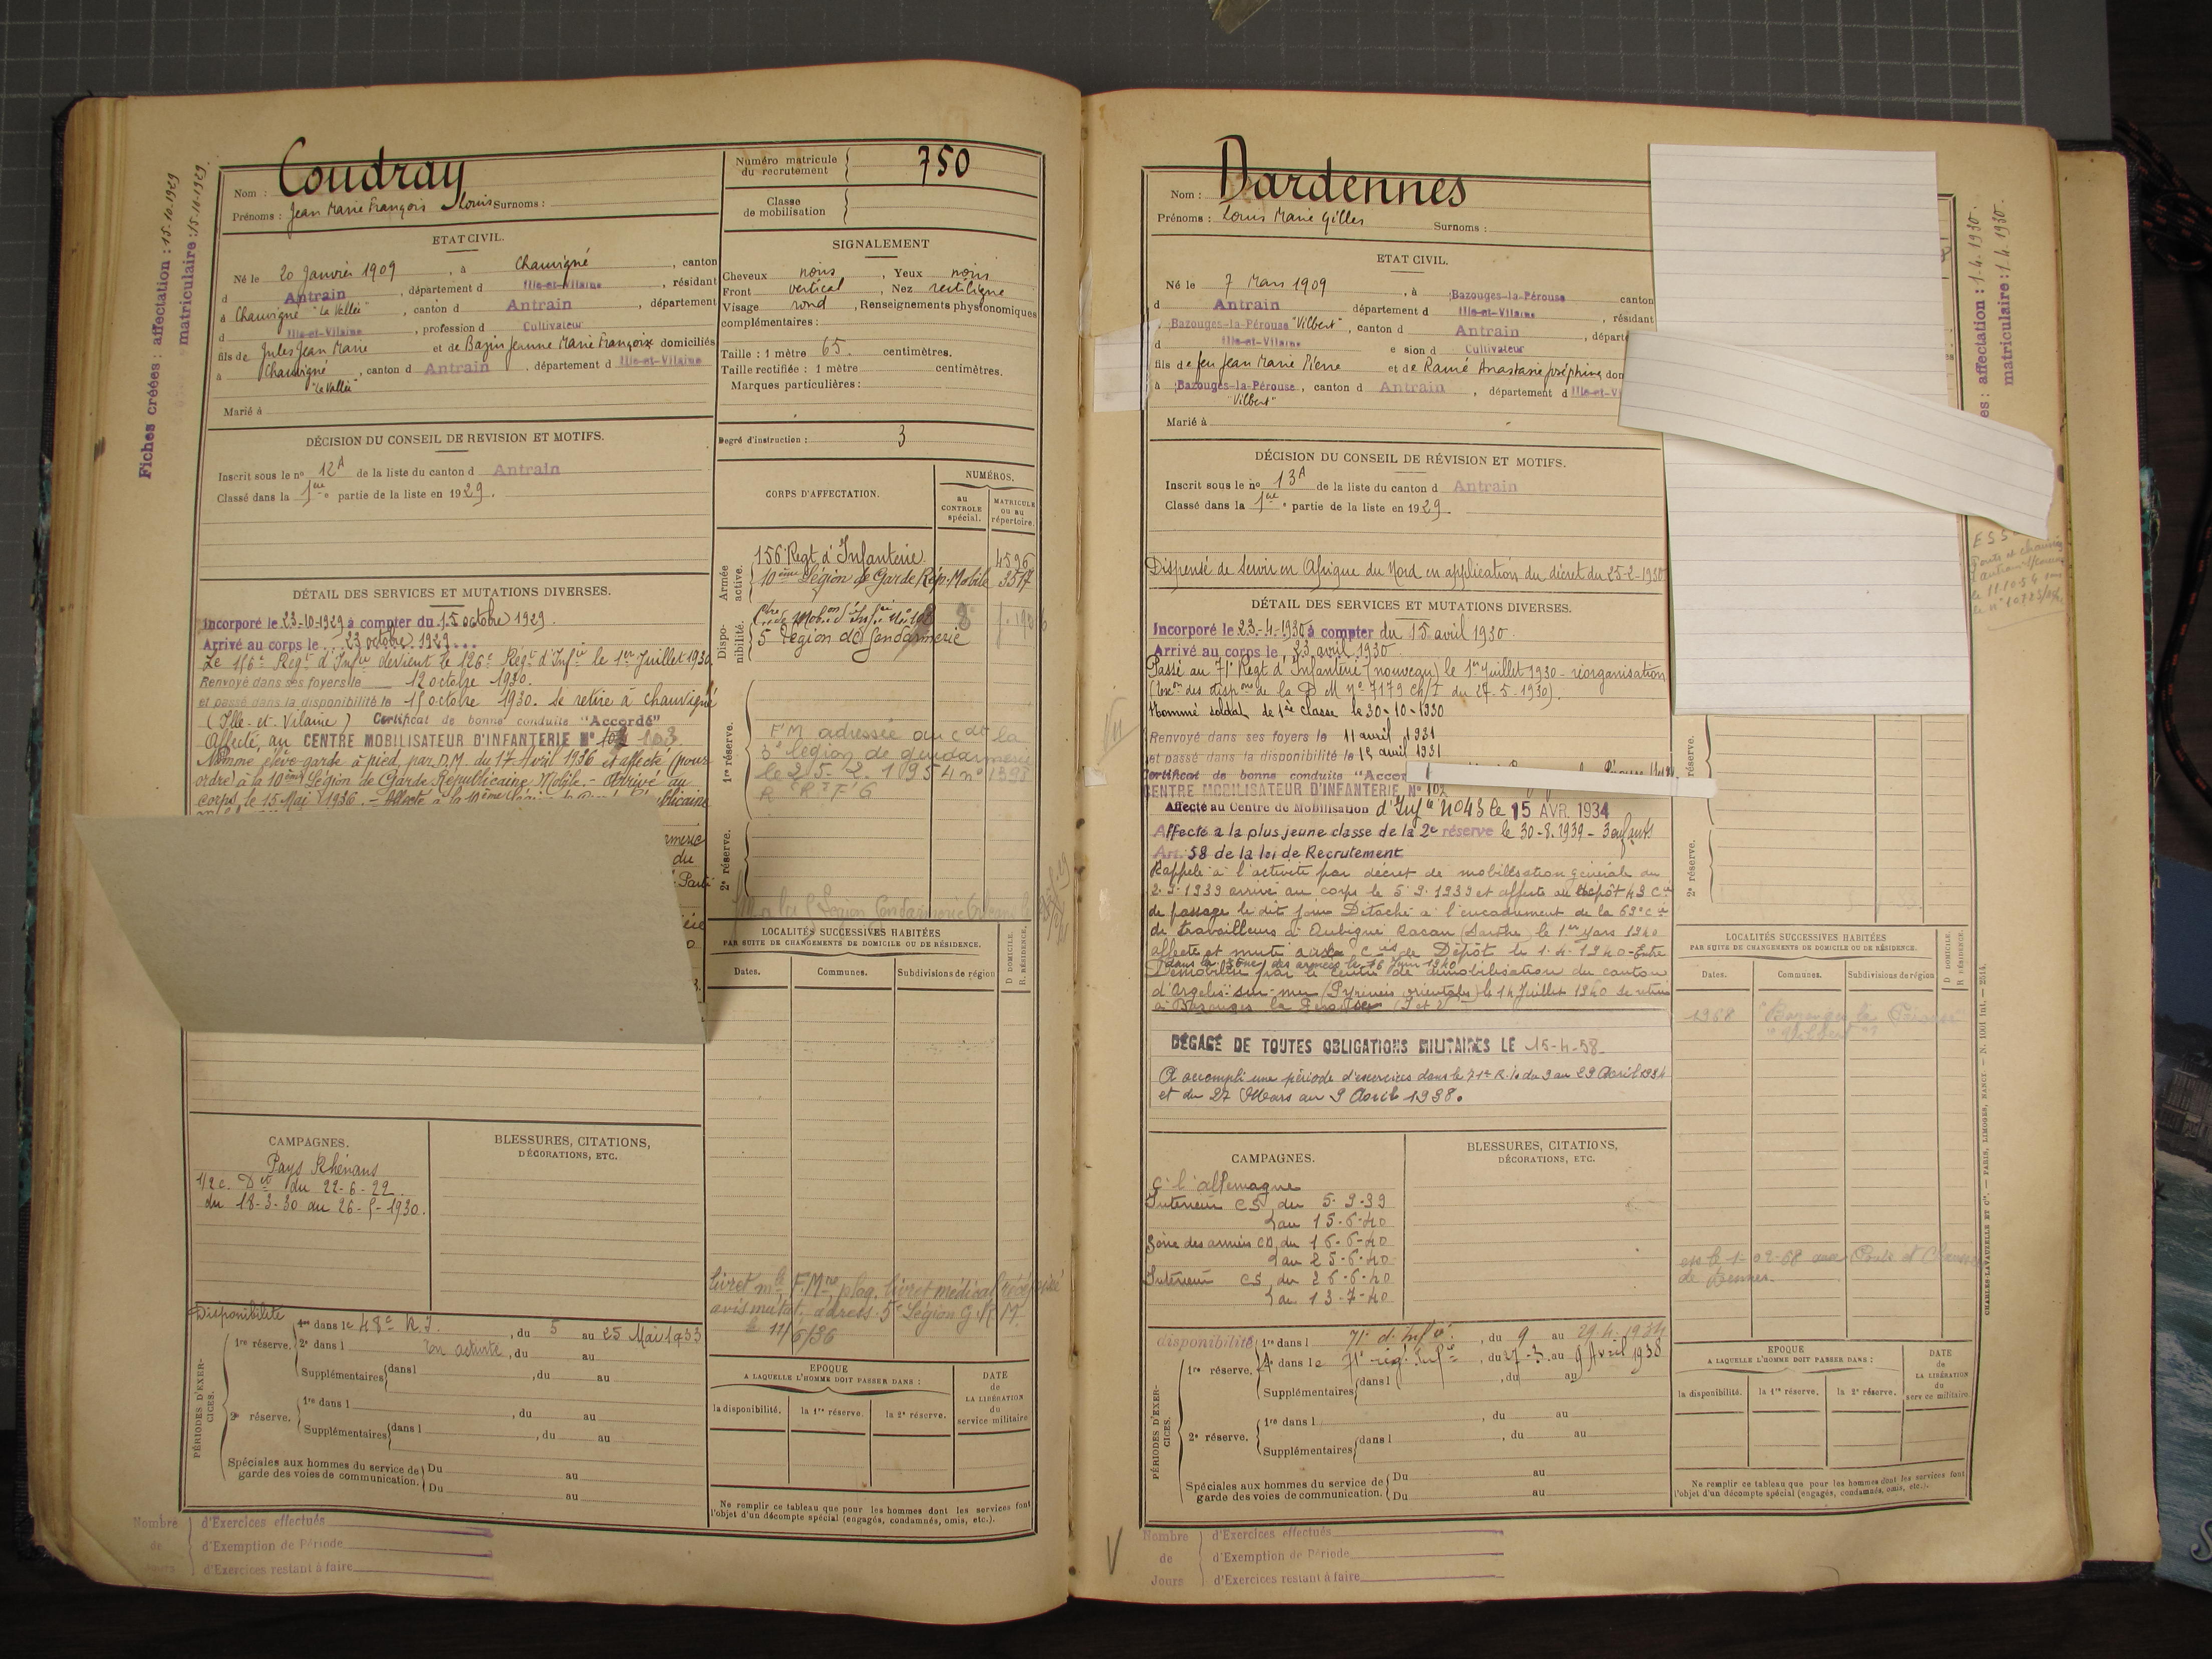 Fiches créées : affectation : 15.10.1929
matriculaire : 15.10.1929.
Nom : Coudray
Prénoms : Jean Marie François Louis Surnoms :
ETAT CIVIL.
Né le 20 Janvier 1909, à Chauvigné, canton
d Antrain, département d Ille-et-Vilaine, résidant
à Chauvigné "La Vallée", canton d Antrain, département
d Ille-et-Vilaine, profession d Cultivateur
fils de Jules Jean Marie et de Bazin Jeanne Marie Françoise domiciliés
à Chauvigné, canton d Antrain, département d Ille-et-Vilaine
"La Vallée"
Marié à
DÉCISION DU CONSEIL DE REVISION ET MOTIFS.
Inscrit sous le nº 12A de la liste du canton d Antrain
Classé dans la 1ère partie de la liste en 1929.
DÉTAIL DES SERVICES ET MUTATIONS DIVERSES.
Incorporé le 23-10-1929 à compter du 15 octobre 1929.
Arrivé au corps le 23 octobre 1929
Le 156e Régt d'Infie devient le 126e Régt d'Infie le 1er Juillet 1930
Renvoyé dans ses foyers le 12 octobre 1930.
et passé dans la disponibilité le 15 octobre 1930. Se retire à Chauvigné
(Ille-et-Vilaine) Certificat de bonne conduite "Accordé"
Affecté, au CENTRE MOBILISATEUR D'INFANTERIE Nº 102 103
Nommé élève-garde à pied, par D.M. du 17 Avril 1936 et affecté (pour
ordre) à la 10ème Légion de Garde Républicaine Mobile.- Arrivé au
corps, le 15 Mai 1936. - Affecté à la 10ème
du
CAMPAGNES.
Pays Rhénans
1/2 c. Det du 22-6-22
du 18-3-30 au 26-5-1930.
BLESSURES, CITATIONS,
DÉCORATIONS, ETC.
Disponibilité
PÉRIODES D'EXERCICES.
1re réserve. 1re dans le 48e R.I., du 5 au 25 Mai 1933
2e dans l En activité, du au
Supplémentaires dans l , du au
2e réserve. 1re dans l , du au
Supplémentaires dans l , du au
Spéciales aux hommes du service de garde des voies de communication. Du au
Du au
Nombre de Jours
d'Exercices effectués
d'Exemption de Période
d'Exercices restant à faire
Numéro matricule du recrutement 750
Classe de mobilisation
SIGNALEMENT
Cheveux noirs, Yeux noirs
Front vertical, Nez rectiligne
Visage rond, Renseignements physionomiques
complémentaires :
Taille : 1 mètre 65. centimètres.
Taille rectifiée : 1 mètre centimètres.
Marques particulières :
Degré d'instruction : 3
CORPS D'AFFECTATION.
NUMÉROS.
au CONTROLE spécial.
MATRICULE ou au répertoire.
Armée active.
156e Regt d'Infanterie 4596
10ème Légion de Garde Rép. Mobile 3517
Disponibilité.
5e Légion de Gendarmerie
1re réserve.
FM adressée au Cdt la
3e légion de gendarmerie
le 25.2.1954 nº 1393
2e réserve.
LOCALITÉS SUCCESSIVES HABITÉES
PAR SUITE DE CHANGEMENTS DE DOMICILE OU DE RÉSIDENCE.
Dates. Communes. Subdivisions de région
D DOMICILE. R. RÉSIDENCE.
avis mutat. adress. 5e Légion G.R.M.
le 11/6/36
EPOQUE
A LAQUELLE L'HOMME DOIT PASSER DANS :
la disponibilité. la 1re réserve. la 2e réserve.
DATE de LA LIBÉRATION du service militaire
Ne remplir ce tableau que pour les hommes dont les services font
l'objet d'un décompte spécial (engagés, condamnés, omis, etc.).
Nom : Dardennes
Prénoms : Louis Marie Gilles Surnoms :
ETAT CIVIL.
Né le 7 Mars 1909, à Bazouges-la-Pérouse canton
d Antrain département d Ille-et-Vilaine, résidant
Bazouges-la-Pérouse "Vilbert", canton d Antrain, départe
d Ille-et-Vilaine e sion d Cultivateur
fils de feu Jean Marie Pierre et de Ramé Anastasie Joséphine dom
à Bazouges-la-Pérouse, canton d Antrain, département d Ille-et-Vi
"Vilbert"
Marié à
DÉCISION DU CONSEIL DE RÉVISION ET MOTIFS.
Inscrit sous le nº 13A de la liste du canton d Antrain
Classé dans la 1ère partie de la liste en 1929.
Dispensé de servir en Afrique du Nord en application du décret du 25-2-1930
DÉTAIL DES SERVICES ET MUTATIONS DIVERSES.
Incorporé le 23-4-1930 à compter du 15 avril 1930.
Arrivé au corps le 23 avril 1930
Passé au 71e Regt d'Infanterie (nouveau) le 1er Juillet 1930 - réorganisation
(Exon des dispons de la D M Nº 7179 Ch/I du 27-5-1930).
Nommé soldat de 1ère classe le 30-10-1930
Renvoyé dans ses foyers le 11 avril 1931
et passé dans la disponibilité le 15 avril 1931
Certificat de bonne conduite "Accor
CENTRE MOBILISATEUR D'INFANTERIE Nº 102
Affecté au Centre de Mobilisation d'Infie Nº 43 le 15 AVR. 1934
Affecté à la plus jeune classe de la 2e réserve le 30-8.1939 - 3 enfants
Art. 58 de la loi de Recrutement
Rappelé à l'activité par décret de mobilisation générale du
2.9.1939 arrivé au corps le 5.9.1939 et affecté au dépôt 43 Cie
de passage le dit jour Détaché à l'encadrement de la 63e Cie
de travailleurs à Aubigné Racan (Sarthe) le 1er Mars 1940
affecté et muté à la Cie de Dépôt le 1.4.1940 - Entre
dans la zone des armées le 16 Juin 1940
Démobilisé par le Centre de démobilisation du canton
d'Argelès-sur-mer (Pyrénées orientales) le 14 Juillet 1940 se retire
à Bazouges la Pérouse (I et V)
DÉGAGÉ DE TOUTES OBLIGATIONS MILITAIRES LE 15-4-58
A accompli une période d'exercices dans le 71e R.I. du 9 au 29 Avril 1934
et du 27 Mars au 9 Avril 1938.
CAMPAGNES.
C. l'allemagne
Intérieur CS du 5-9-39
au 15-6-40
Zône des armées CD du 16-6-40
au 25-6-40
Intérieur CS du 26-6-40
au 13-7-40
BLESSURES, CITATIONS,
DÉCORATIONS, ETC.
disponibilité 1re dans l 71e d'Infie., du 9 au 29.4.1934
PÉRIODES D'EXERCICES.
1re réserve. dans le 71e rég. Infie, du 27-3 au 9 Avril 1938
Supplémentaires dans l , du au
2e réserve. 1re dans l , du au
Supplémentaires dans l , du au
Spéciales aux hommes du service de garde des voies de communication. Du au
Du au
Nombre de Jours
d'Exercices effectués
d'Exemption de Période
d'Exercices restant à faire
es : affectation : 1.4.1930.
matriculaire : 1.4.1930.
ESS
réserve.
2e réserve.
LOCALITÉS SUCCESSIVES HABITÉES
PAR SUITE DE CHANGEMENTS DE DOMICILE OU DE RÉSIDENCE.
Dates. Communes. Subdivisions de région
D DOMICILE. R RÉSIDENCE.
1968 Bazouges la Pérouse
"Vilbert"
de Rennes
EPOQUE
A LAQUELLE L'HOMME DOIT PASSER DANS :
la disponibilité. la 1re réserve. la 2e réserve.
DATE de LA LIBÉRATION du service militaire
Ne remplir ce tableau que pour les hommes dont les services font
l'objet d'un décompte spécial (engagés, condamnés, omis, etc.).
CHARLES-LAVAUZELLE ET Cie. — PARIS, LIMOGES, NANCY. — N. 1001 Int. — 2514.